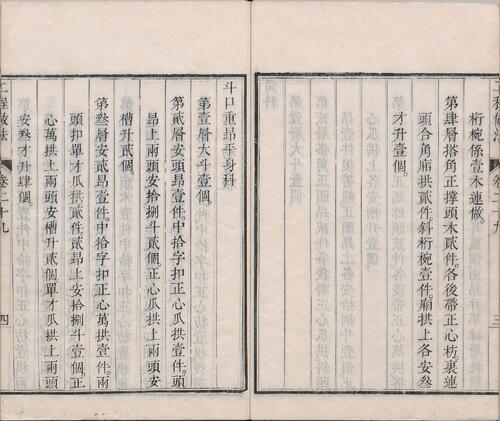 工程做法
卷二十九
三
桁椀係壹木連做。
第肆層搭角正撑頭木貳件。各後帶正心枋。裏連
頭合角廂拱貳件。斜桁椀壹件。廂拱上各安叁
才升壹個。
斗口重昂平身科
第壹層大斗壹個。
第貳層安頭昂壹件。中拾字扣正心瓜拱壹件。頭
昂上兩頭安拾捌斗貳個。正心瓜拱上兩頭安
槽升貳個。
第叁層安貳昂壹件。中拾字扣正心萬拱壹件。兩
頭扣單才瓜拱貳件。貳昂上安拾捌斗壹個。正
心萬拱上兩頭安槽升貳個。單才瓜拱上兩頭
安叁才升肆個。
工程做法
卷二十九
四